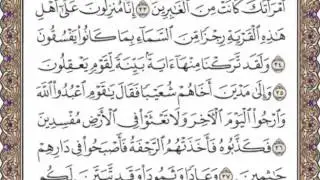 ٱمْرَأَتَكَ كَانَتْ مِنَ ٱلْغَٰبِرِينَ ٣٣ إِنَّا مُنزِلُونَ عَلَىٰٓ أَهْلِ
هَٰذِهِ ٱلْقَرْيَةِ رِجْزًا مِّنَ ٱلسَّمَآءِ بِمَا كَانُوا۟ يَفْسُقُونَ
٣٤ وَلَقَد تَّرَكْنَا مِنْهَآ ءَايَةًۢ بَيِّنَةً لِّقَوْمٍ يَعْقِلُونَ
٣٥ وَإِلَىٰ مَدْيَنَ أَخَاهُمْ شُعَيْبًا فَقَالَ يَٰقَوْمِ ٱعْبُدُوا۟ ٱللَّهَ
وَٱرْجُوا۟ ٱلْيَوْمَ ٱلْءَاخِرَ وَلَا تَعْثَوْا۟ فِى ٱلْأَرْضِ مُفْسِدِينَ
٣٦ فَكَذَّبُوهُ فَأَخَذَتْهُمُ ٱلرَّجْفَةُ فَأَصْبَحُوا۟ فِى دَارِهِمْ
جَٰثِمِينَ ٣٧ وَعَادًا وَثَمُودَا۟ وَقَد تَّبَيَّنَ لَكُم